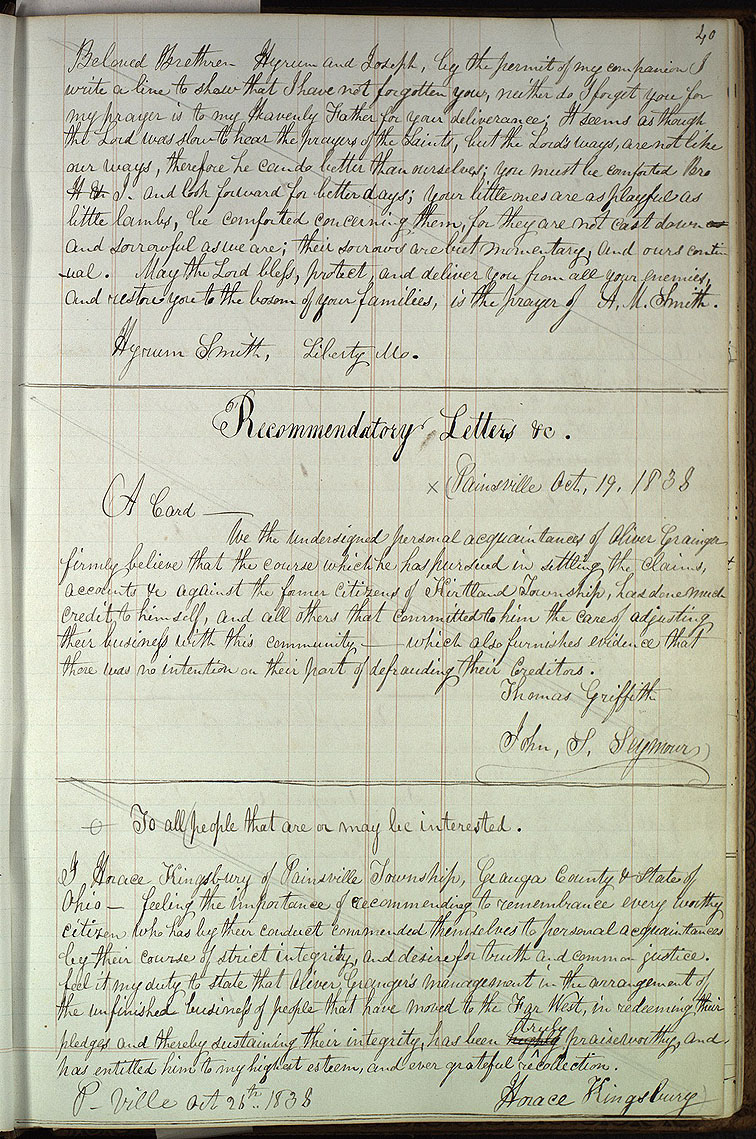 40
Beloved Brethren Hyrum and Joseph, by the permit of my companion I
write a line to show that I have not forgotten you, neither do I forget you for
my prayer is to my Heavenly Father for your deliverance; It seems as though
the Lord was slow to hear the prayers of the Saints, but the Lord's ways, are not like
our ways, therefore he can do better than ourselves; you must be comforted Bro
H & J. and look forward for better days; your little ones are as playful as
little lambs, be comforted concerning them, for they are not cast down
and sorrowful as we are; their sorrows are but momentary, and ours contin
-ual. May the Lord bless, protect, and deliver you from all your enemies,
and restore you to the bosom of your families, is the prayer of A. M. Smith.
Hyrum Smith, Liberty Mo.
Recommendatory Letters &c.
× Painsville Oct, 19, 1838
A Card —
We the undersigned personal acquaintances of Oliver Grainger
firmly believe that the course which he has pursued in settling the claims,
accounts &c against the former citizens of Kirtland Township, has done much
credit, to himself, and all others that committed to him the care of adjusting
their business with this community — which also furnishes evidence that
there was no intention on their part of defrauding their Creditors.
Thomas Griffith
John, S, Seymour
To all people that are or may be interested.
I Horace Kingsbury of Painsville Township, Geauga County & State of
Ohio — feeling the importance of recommending to remembrance every worthy
citizen who has by their conduct commended themselves to personal acquaintances
by their course of strict integrity, and desire for truth and common justice.
feel it my duty to state that Oliver Grangers management in the arrangement of
the unfinished business of people that have moved to the Far West, in redeeming their
pledges and thereby sustaining their integrity, has been truly praiseworthy, and
has entitled him to my highest esteem, and ever grateful recollection.
P-Ville Oct 26th. 1838 Horace Kingsbury